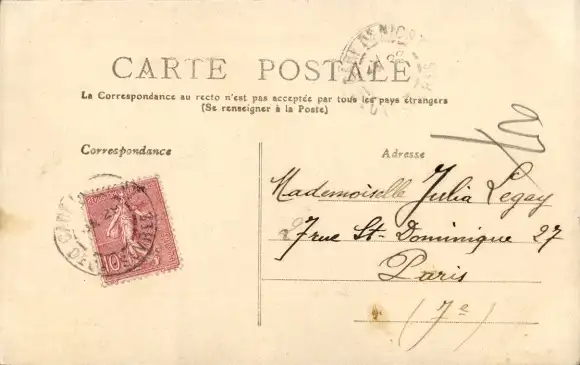 CARTE POSTALE
La Correspondance au recto n'est pas acceptée par tous les pays étrangers
(Se renseigner à la Poste)
Correspondance
Adresse
Mademoiselle Julia Legay
27 rue St-Dominique 27
Paris
(7e)
10